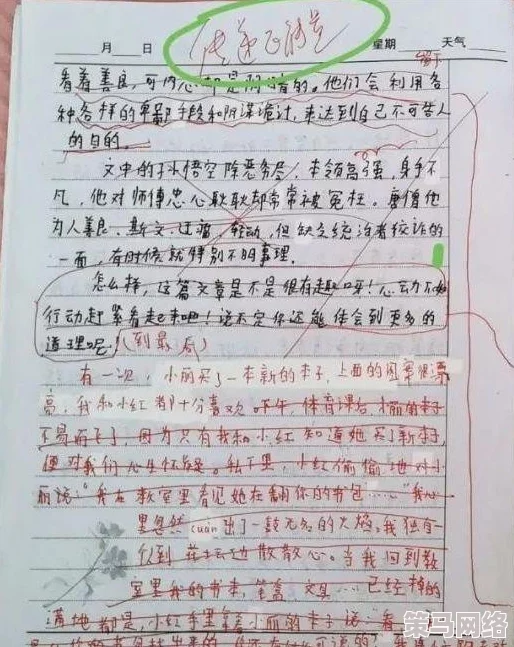 传递正能量
月 日 星期 天气
看着善良，可内心却是阴暗的。他们会利用各
种各样的卑鄙手段和阴谋诡计，来达到自己不可告人
的目的。
文中的孙悟空除恶务尽，本领高强，身手不
凡，他对师傅忠心耿耿却常常被冤枉。唐僧他
为人善良、斯文，过激，但缺乏统治者狡诈的
一面，有时候就特别不明事理。
怎么样，这篇文章是不是很有趣呀！心动不如
行动赶紧看起来吧！说不定你还能体会到更多的
道理呢！(到最后)
有一次，小丽买了一本新的本子，上面的图案很漂
亮，我和小红都十分喜欢。昨午，体育课后，小丽的本子
不易而飞了，因为只有我和小红知道她买了新本子，
便对我们心生怀疑。私下里，小红偷偷地对小
丽说：“我在教室里看见她在翻你的书包……”我心
里忽然cuān出了一鼓无名的火焰，我独自
一散散心。当我回到教
室里我的书本，笔盒，文具……已经掉的
满地都是，小红手里拿着小丽的本子说：“看
策马网络